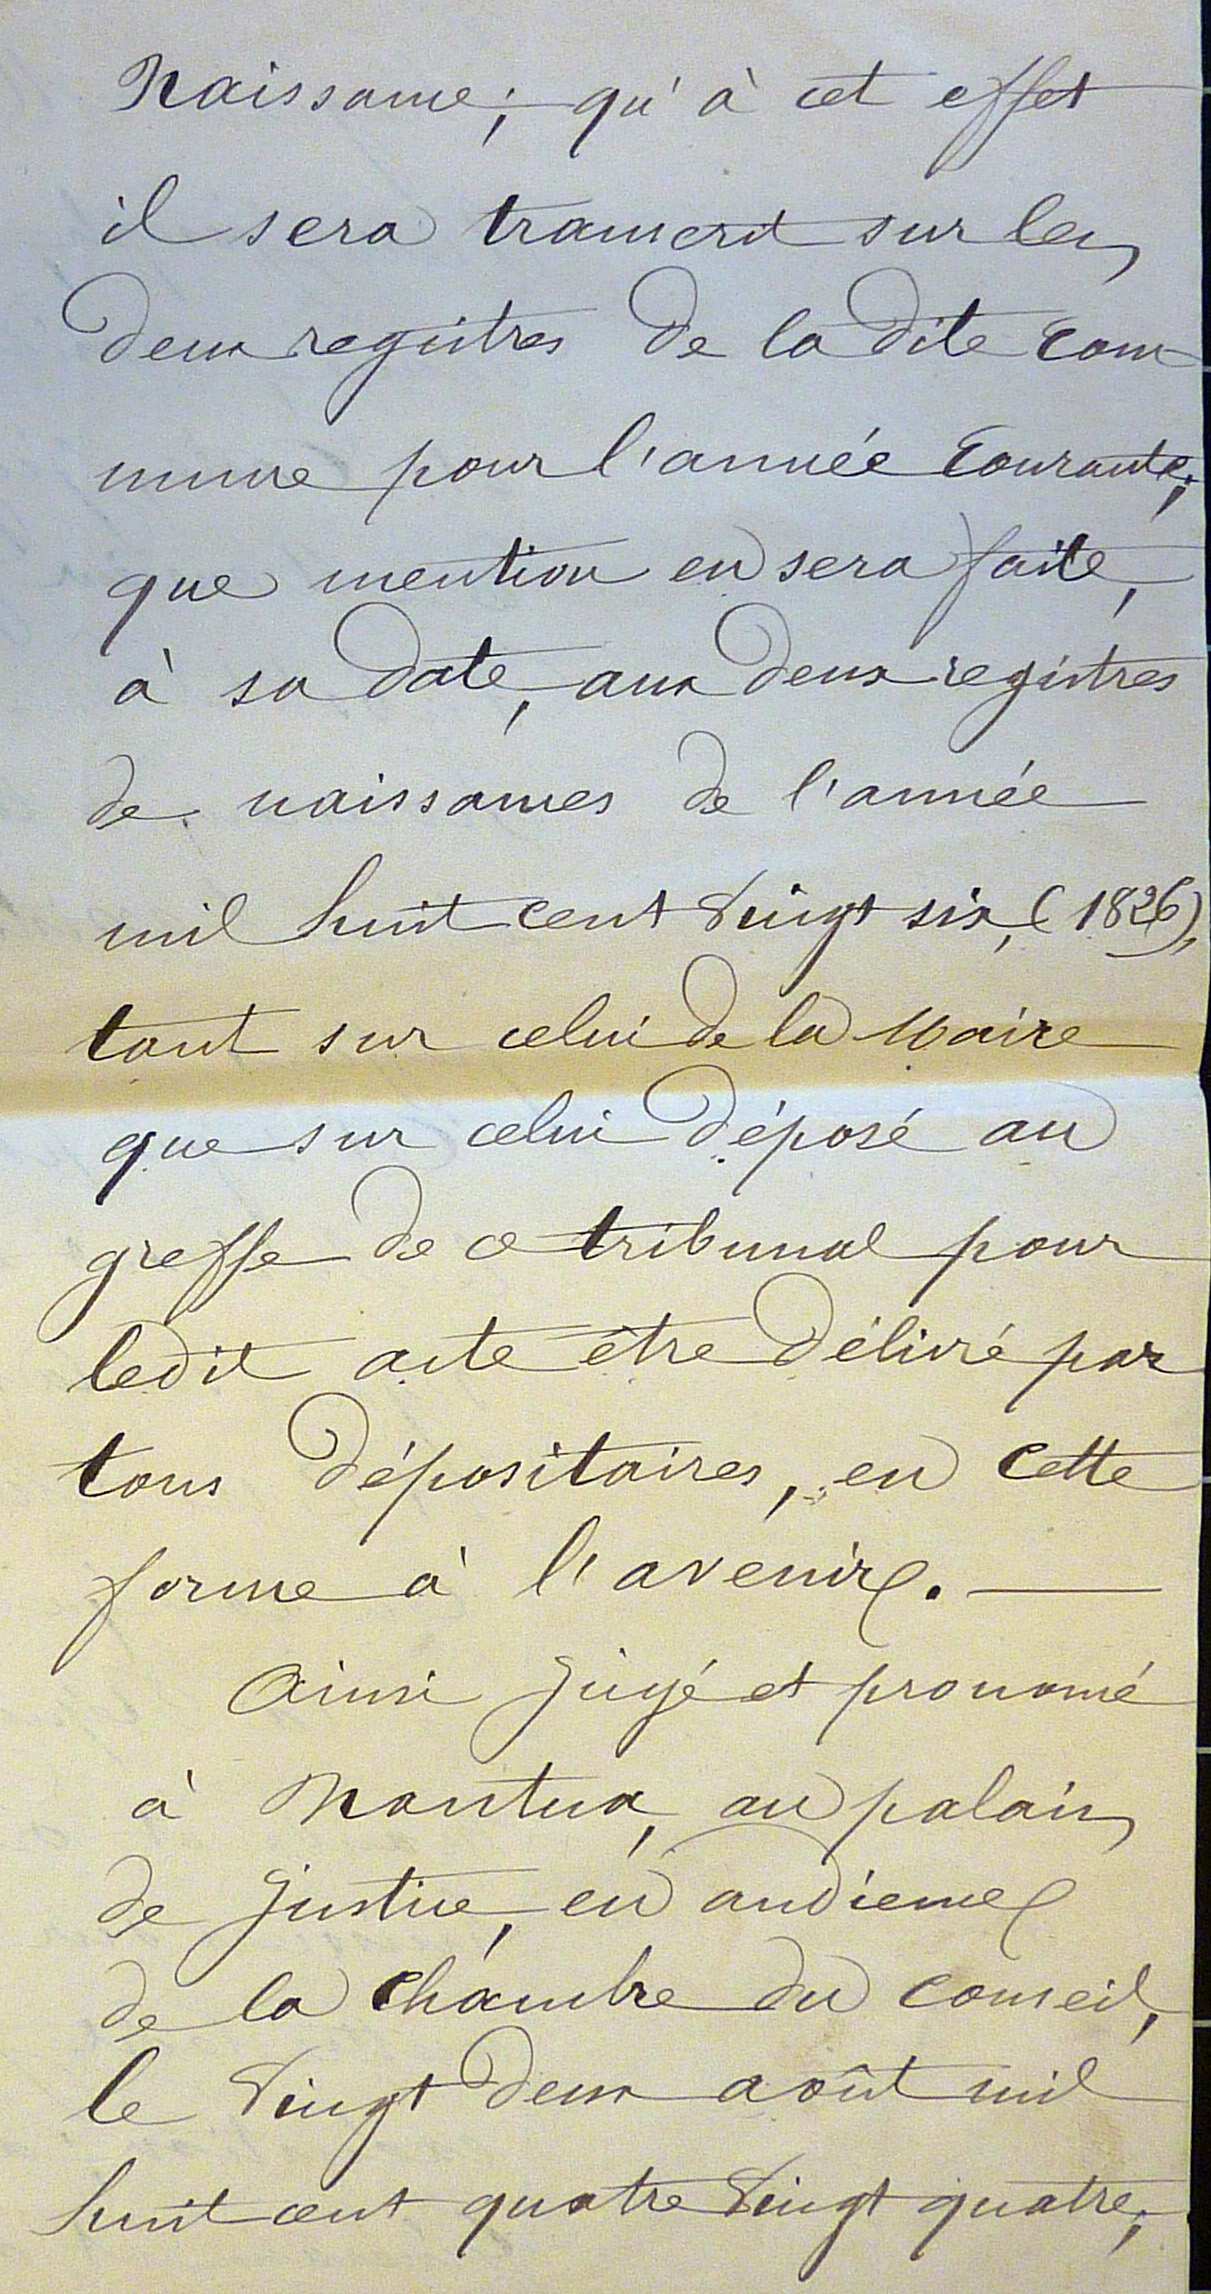 Naissance; qu'à cet effet
il sera transcrit sur les
deux registres de la dite Com
mune pour l'année Courante;
que mention en sera faite,
à sa date, aux deux registres
de naissances de l'année
mil huit cent Vingt six, (1826),
tant sur celui de la Maire
que sur celui déposé au
greffe de ce tribunal pour
ledit acte être délivré par
tous dépositaires, en cette
forme à l'avenir. —
Ainsi Jugé et prononcé
à Nantua, au palais
de Justice, en audience
de la Chambre du Conseil,
le Vingt deux août mil
huit cent quatre Vingt quatre;